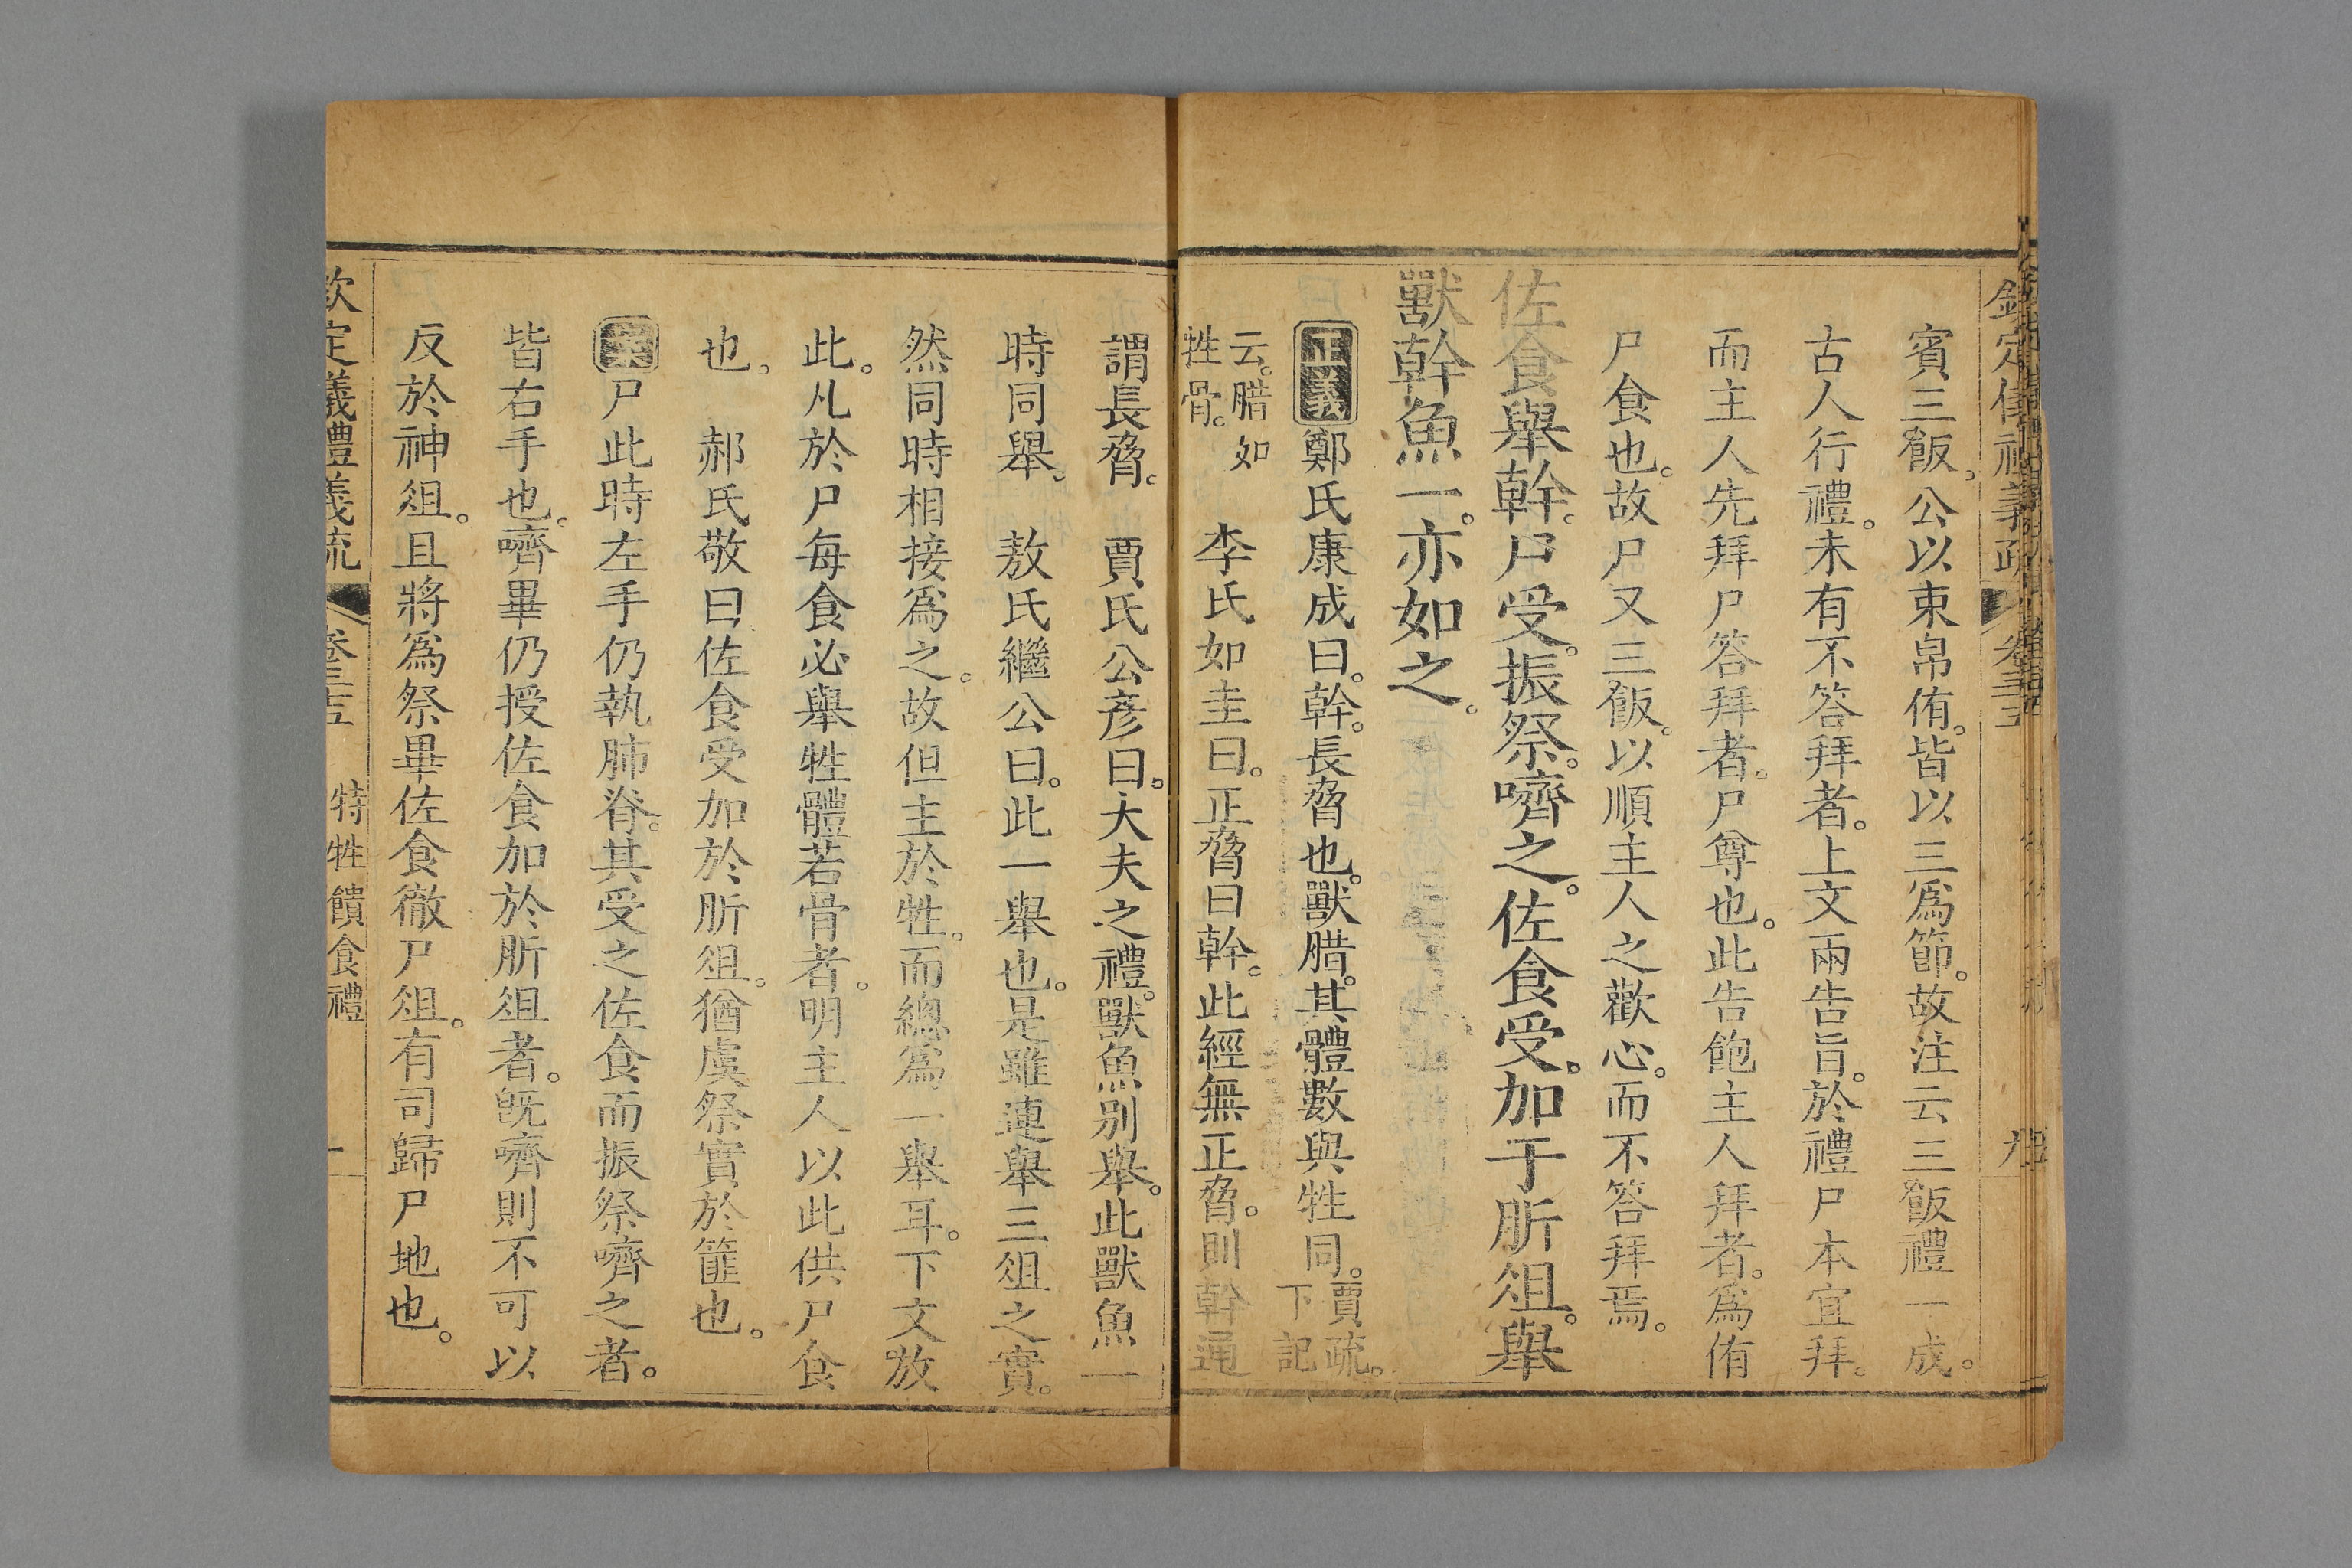 欽定儀禮義疏 卷三十五 九
賓三飯。公以束帛侑。皆以三爲節。故注云三飯禮一成。
古人行禮。未有不答拜者。上文兩告旨。於禮尸本宜拜。
而主人先拜尸答拜者。尸尊也。此告飽主人拜者。爲侑
尸食也。故尸又三飯。以順主人之歡心。而不答拜焉。
佐食舉幹。尸受。振祭。嚌之。佐食受。加于肵俎。舉
獸幹魚一。亦如之。
正義 鄭氏康成曰。幹。長脅也。獸腊。其體數與牲同。賈疏。下記
云。腊如牲骨。 李氏如圭曰。正脅曰幹。此經無正脅。則幹通
謂長脅。 賈氏公彥曰。大夫之禮。獸魚別舉。此獸魚一
時同舉。 敖氏繼公曰。此一舉也。是雖連舉三俎之實。
然同時相接爲之。故但主於牲。而總爲一舉耳。下文放
此。凡於尸每食必舉牲體若骨者。明主人以此供尸食
也。 郝氏敬曰佐食受加於肵俎。猶虞祭實於篚也。
案 尸此時左手仍執肺脊。其受之佐食而振祭嚌之者。
皆右手也。嚌畢仍授佐食加於肵俎者。旣嚌則不可以
反於神俎。且將爲祭畢佐食徹尸俎。有司歸尸地也。
欽定儀禮義疏 卷三十五 特牲饋食禮